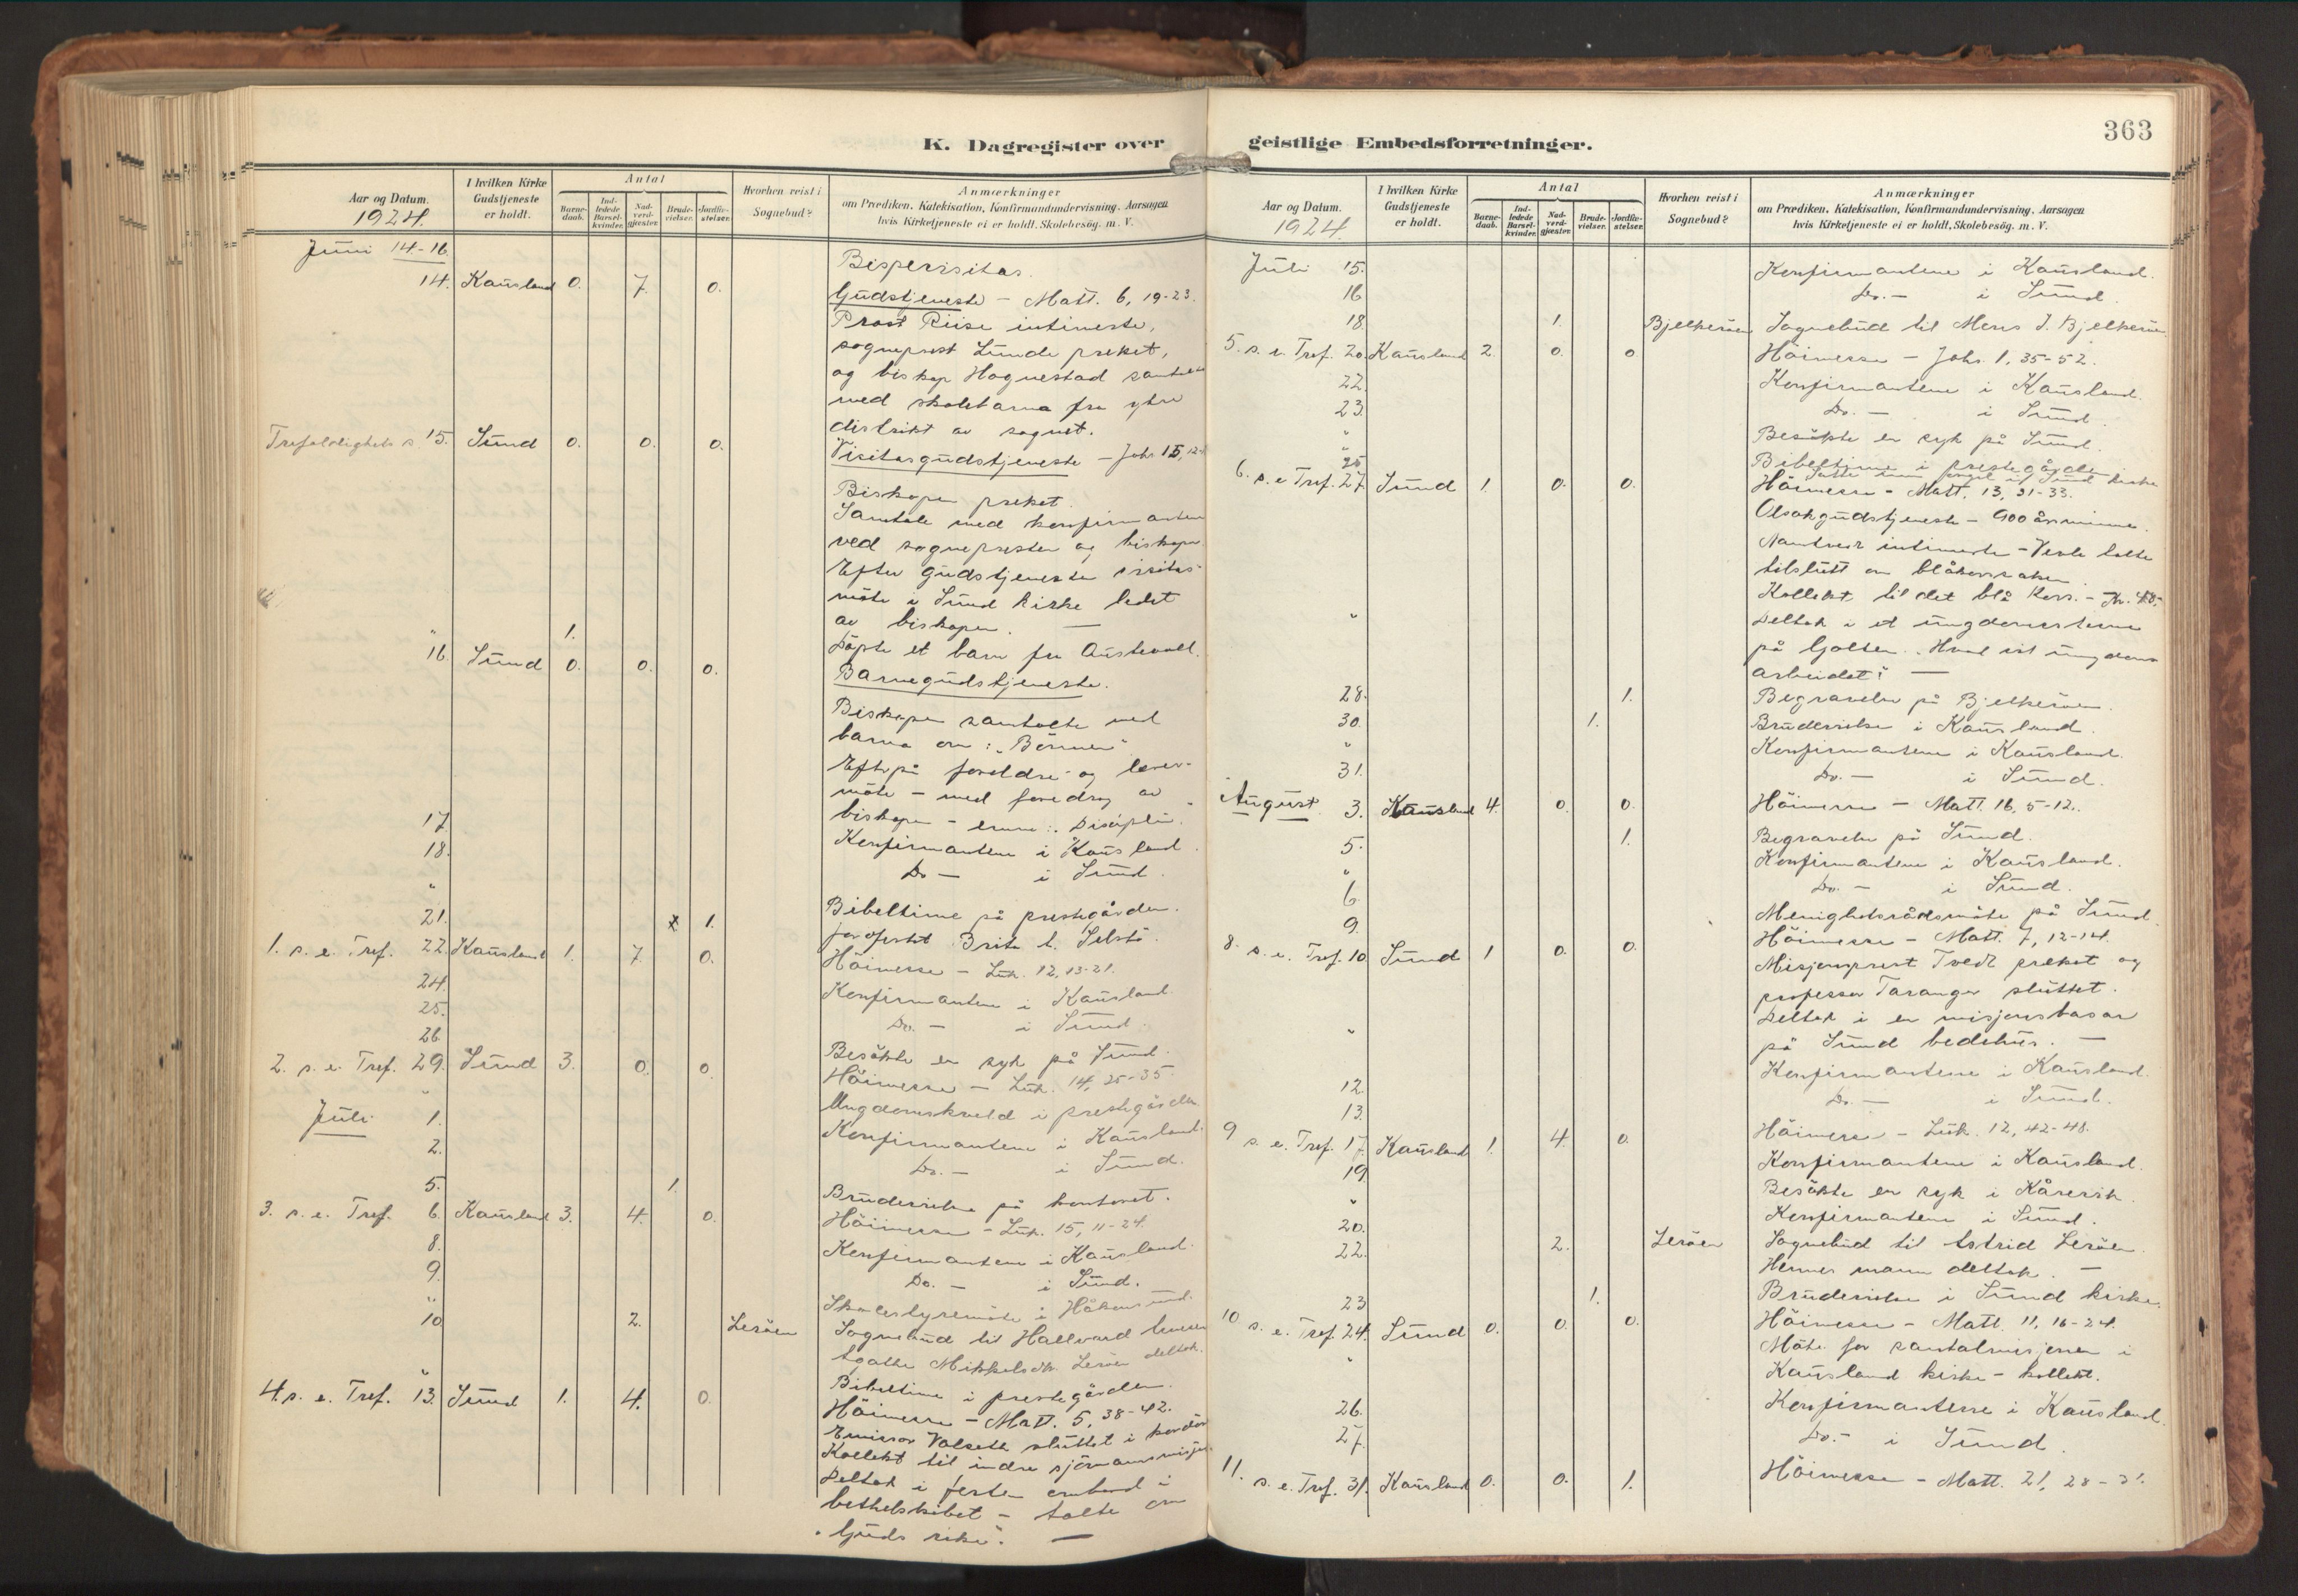 K. Dagregister over
Aar og Datum.
1924.
I hvilken Kirke Gudstjeneste er holdt.
Antal
Barne-daab.
Ind-ledede Barsel-kvinder.
Nad-verd-gjester.
Brude-vielser.
Jordfæ-stelser.
Hvorhen reist i Sognebud?
Anmærkninger
om Prædiken, Katekisation, Konfirmandundervisning, Aarsagen
hvis Kirketjeneste ei er holdt, Skolebesög. m. V.
Juni 14-16. Bispevisitas.
14. Kausland 0. 7. 0. Gudstjeneste – Matt. 6, 19-23.
Prost Riise intimerte,
sogneprest Lunde preket,
og biskop Hognestad samtalte
med skolebarna fra ytre
distrikt av sognet.
Trefoldighets s. 15. Sund 0. 0. 0. Visitasgudstjeneste – Joh. 15, 12-
Biskopen preket.
Samtale med konfirmanten
ved sognepresten og biskopen
Efter gudstjenesten visitas-
möte i Sund kirke ledet
av biskopen. –
" 1. Döpte et barn fra Austevoll.
16. Sund 0. 0. 0. Barnegudstjeneste.
Biskopen samtalte med
barna om: "Bönnen"
Efterpå foreldre- og lærer-
möte – med foredrag av
biskopen – emne: Disciplin.
17. Konfirmantene i Kausland.
18. Do – i Sund.
" Bibeltime på prestegården.
21. x 1. Jordfestet Brita L. Selstö.
1. s. e. Tref. 22. Kausland 1. 7. 0. Höimesse – Luk. 12, 13-21.
24. Konfirmantene i Kausland.
25. Do. – i Sund.
26. Besökte en syk på Sund.
2. s. e. Tref. 29. Sund 3. 0. 0. Höimesse – Luk. 14, 25-35.
" Ungdomskveld i prestegården
Juli 1. Konfirmantene i Kausland.
2. Do. – i Sund.
5. 1. Brudevielse på kontoret.
3. s. e. Tref. 6. Kausland 3. 4. 0. Höimesse – Luk. 15, 11-24.
8. Konfirmantene i Kausland.
9. Do. – i Sund.
" Skolestyremöte i Håkonsund.
10 2. Leröen Sognebud til Hallvard
Mikkelsdtr. Leröen deltok.
" Bibeltime i prestegården.
4. s. e. Tref. 13. Sund 1. 4. 0. Höimesse – Matt. 5, 38-42.
Emissær Valseth sluttet i kordör
Kollekt til indre sjömannsmisjon
Deltok i festen ombord i
bethelskibet – talte om
"Guds rike". –
geistlige Embedsforretninger.
363
Aar og Datum.
1924.
I hvilken Kirke Gudstjeneste er holdt.
Antal
Barne-daab.
Ind-ledede Barsel-kvinder.
Nad-verd-gjester.
Brude-vielser.
Jordfæ-stelser.
Hvorhen reist i Sognebud?
Anmærkninger
om Prædiken, Katekisation, Konfirmandundervisning, Aarsagen
hvis Kirketjeneste ei er holdt, Skolebesög. m. V.
Juli 15. Konfirmantene i Kausland.
16 Do. – i Sund.
18. 1. Bjelkeröen Sognebud til Mons J. Bjelkeröen
5. s. e. Tref. 20. Kausland 2. 0. 0 Höimesse – Joh. 1, 35-52.
22. Konfirmantene i Kausland.
23. Do. – i Sund.
" Besökte en syk på Sund.
" Bibeltime i prestegården
25 Satte inn orgel i Sund kirke
6. s. e Tref. 27. Sund 1. 0. 0. Höimesse – Matt. 13, 31-33.
Olsokgudstjeneste – 900 årsminne.
Namtvedt intimerte – Veste talte
tilslutt om blåkorssaken.
Kollekt til det blå Kors. – Kr. 48,-
" Deltok i et ungdomsstevne
på Golten. Hvad vil ungdoms
arbeidet? –
28. 1. Begravelse på Bjelkeröen.
30. 1. Brudevielse i Kausland.
" Konfirmantene i Kausland.
31. Do. – i Sund.
August 3. Kausland 4. 0. 0. Höimesse – Matt. 16, 5-12.
5. 1. Begravelse på Sund.
" Konfirmantene i Kausland.
6. Do. – i Sund.
9. Menighetsrådsmöte på Sund.
8. s. e. Tref. 10 Sund 1 0. 0. Höimesse – Matt. 7, 12-14.
Misjonsprest Tvedt preket og
professor Taranger sluttet.
" Deltok i en misjonsbasar
på Sund bedehus. –
12. Konfirmantene i Kausland.
13. Do. – i Sund.
9 s. e. Tref. 17. Kausland 1. 4. 0. Höimesse – Luk. 12, 42-48.
19. Konfirmantene i Kausland.
" Besökte en syk i Kårevik.
20. Konfirmantene i Sund.
22. 2. Leröen Sognebud til Astrid Leröen.
Hennes mann deltok. –
23 1. Brudevielse i Sund kirke.
10 s. e. Tref. 24. Sund 0. 0. 0. Höimesse – Matt. 11, 16-24.
" Möte for santalmisjonen i
Kausland kirke – kollekt.
26. Konfirmantene i Kausland.
27. Do. – i Sund.
11. s. e. Tref. 31. Kausland 0. 0. 1. Höimesse – Matt. 21, 28-31.